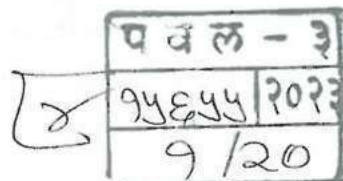 प व ल - ३
१५६५५ २०२३
१ /20